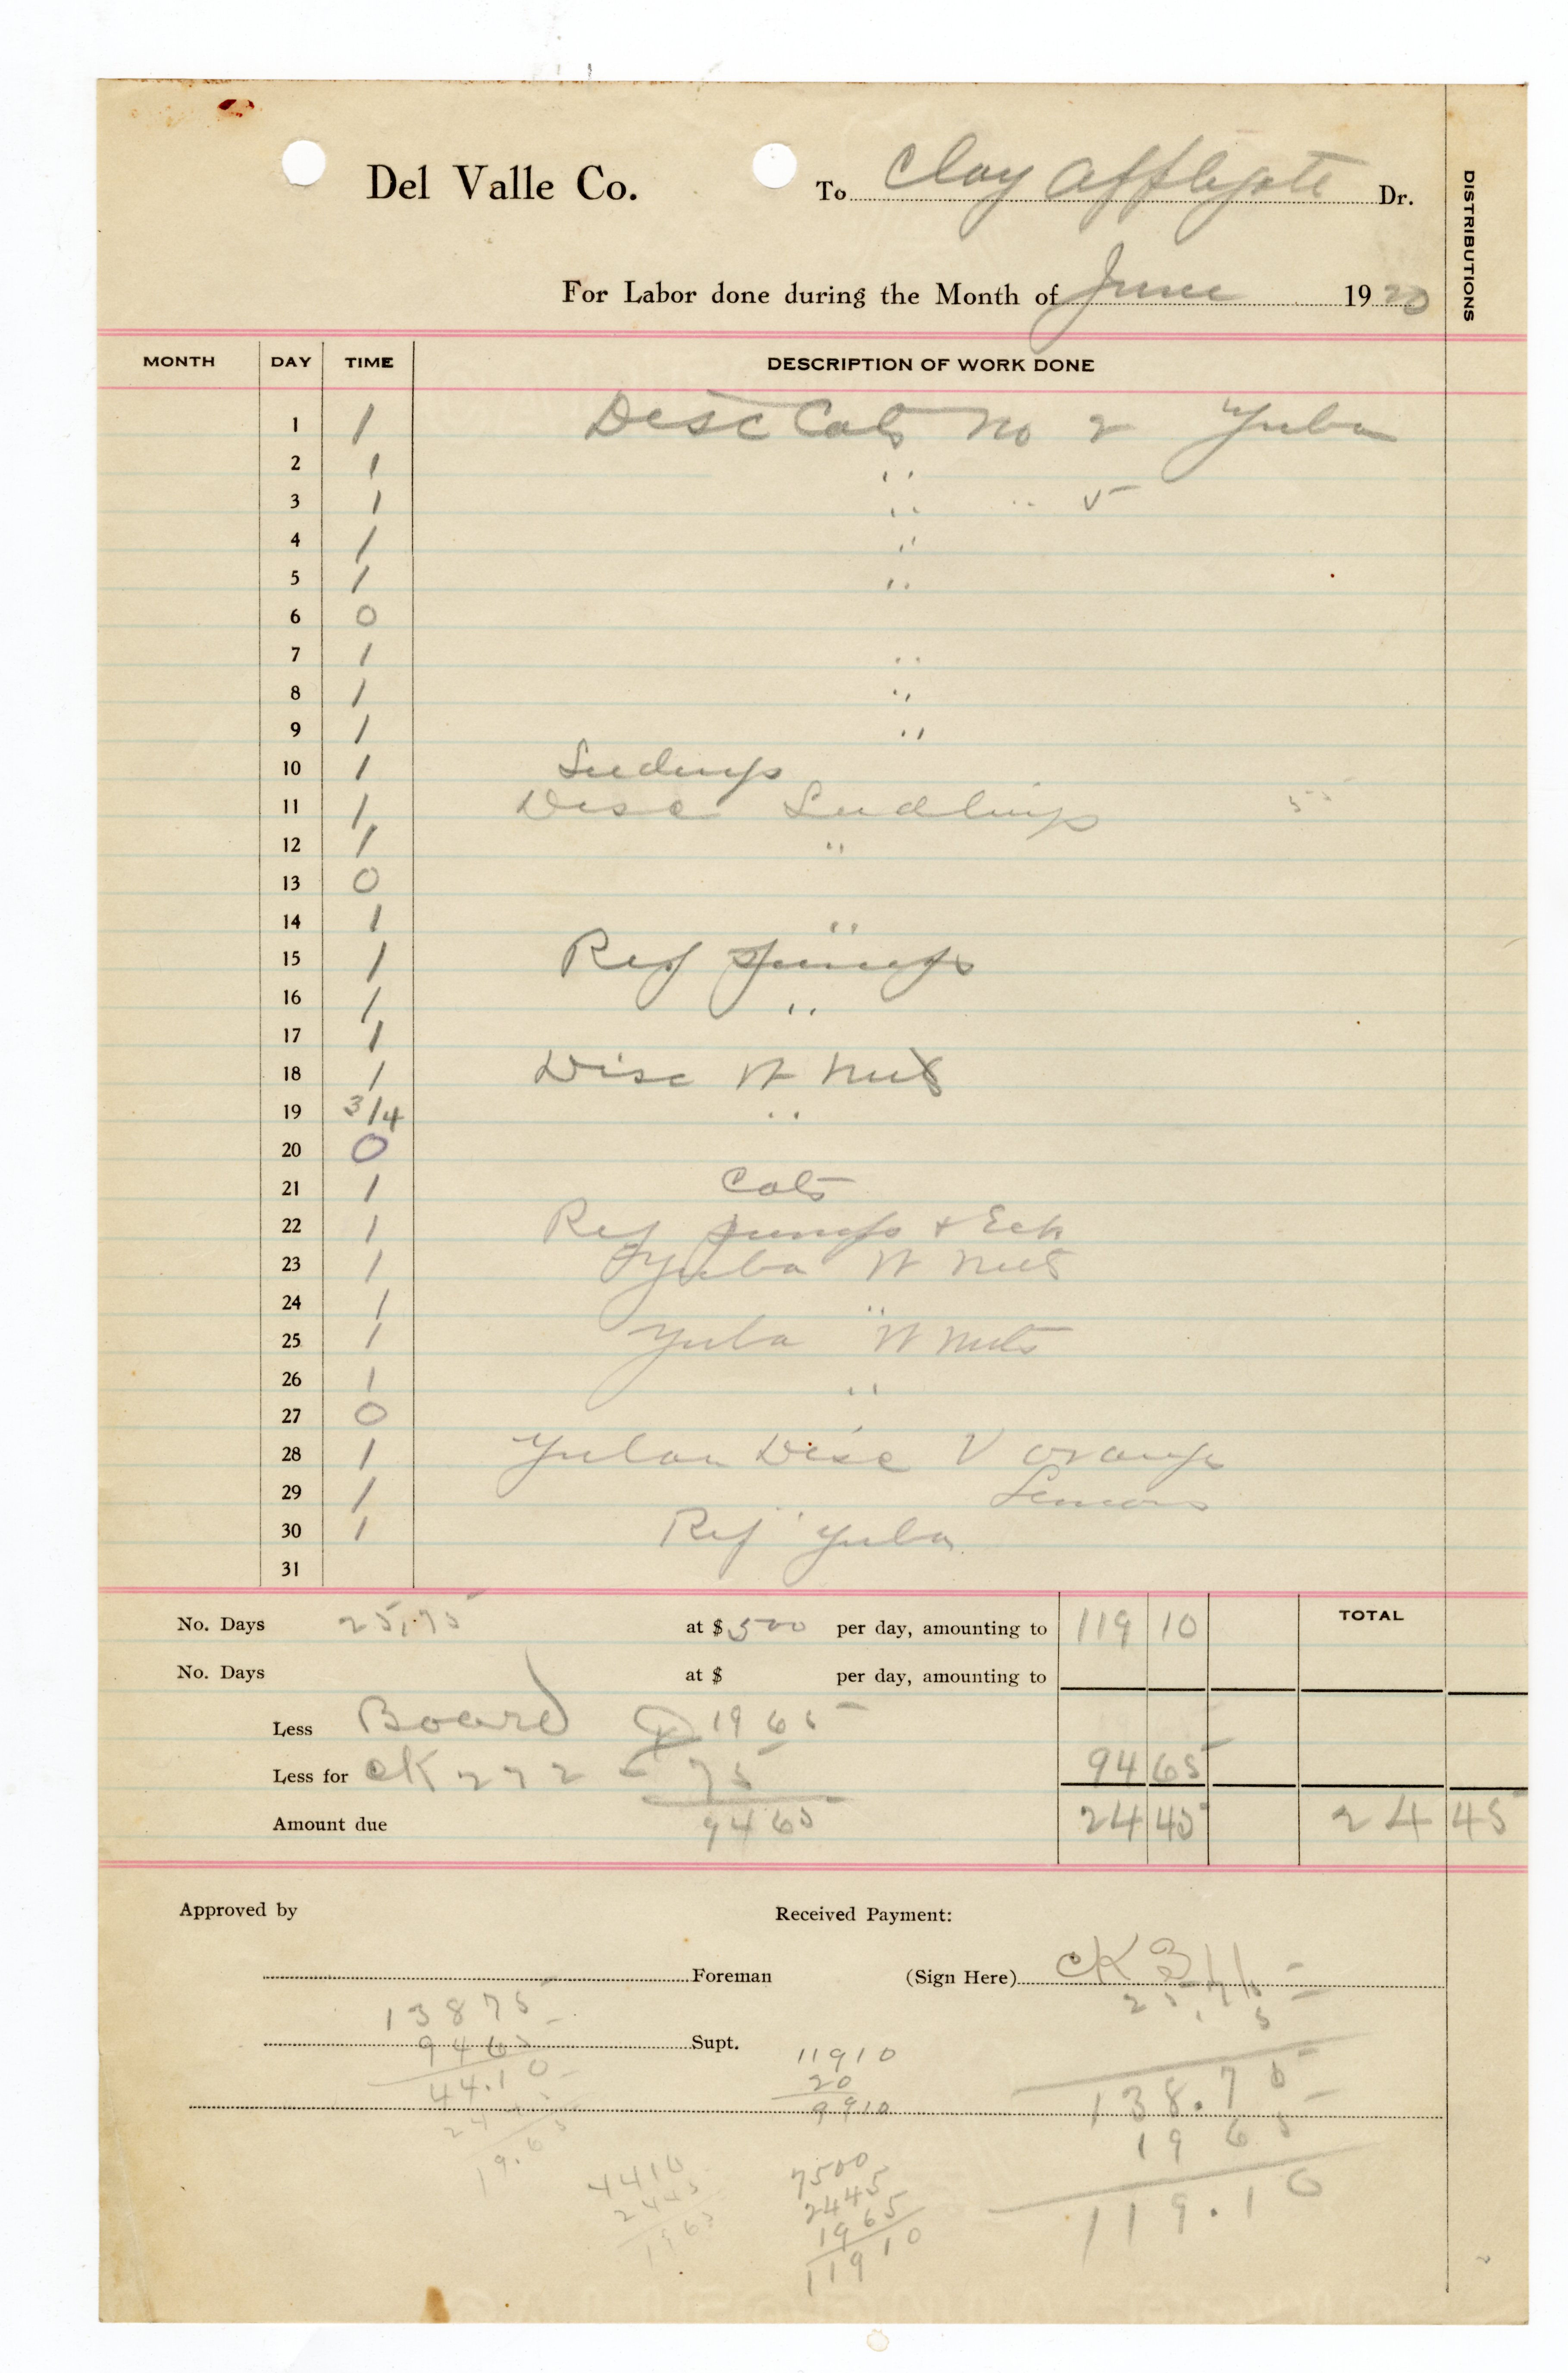 Del Valle Co. To Clay Applegate Dr.
DISTRIBUTIONS
For Labor done during the Month of June 1920
MONTH DAY TIME DESCRIPTION OF WORK DONE
1 1 Disc Cots No 2 Yuba
2 1 "
3 1 " "
4 1 "
5 1 "
6 0
7 1 "
8 1 "
9 1 "
10 1
11 1 Disc Seedlings
12 1 "
13 0
14 1 "
15 1 Rep
16 1 "
17 1
18 1 Disc W Nuts
19 3/4 "
20 0
21 1 Cots
22 1 Rep pumps +
23 1 Yuba W Nuts
24 1 "
25 1 Yuba W Nuts
26 1 "
27 0
28 1 Disc V orange
29 1 Lemons
30 1 Rep Yuba
31
No. Days 25.75 at $ 500 per day, amounting to 119 10 TOTAL
No. Days at $ per day, amounting to
Less Board 19 65
Less for CK 272 75 94 65
Amount due 94 65 24 45 24 45
Approved by Received Payment:
Foreman (Sign Here) CK
25.75
5
13875
9465 Supt.
44.10
2445
19.65
11910
20
9910
138.75
19 65
119.10
4410
2445
1965
7500
2445
1965
11910